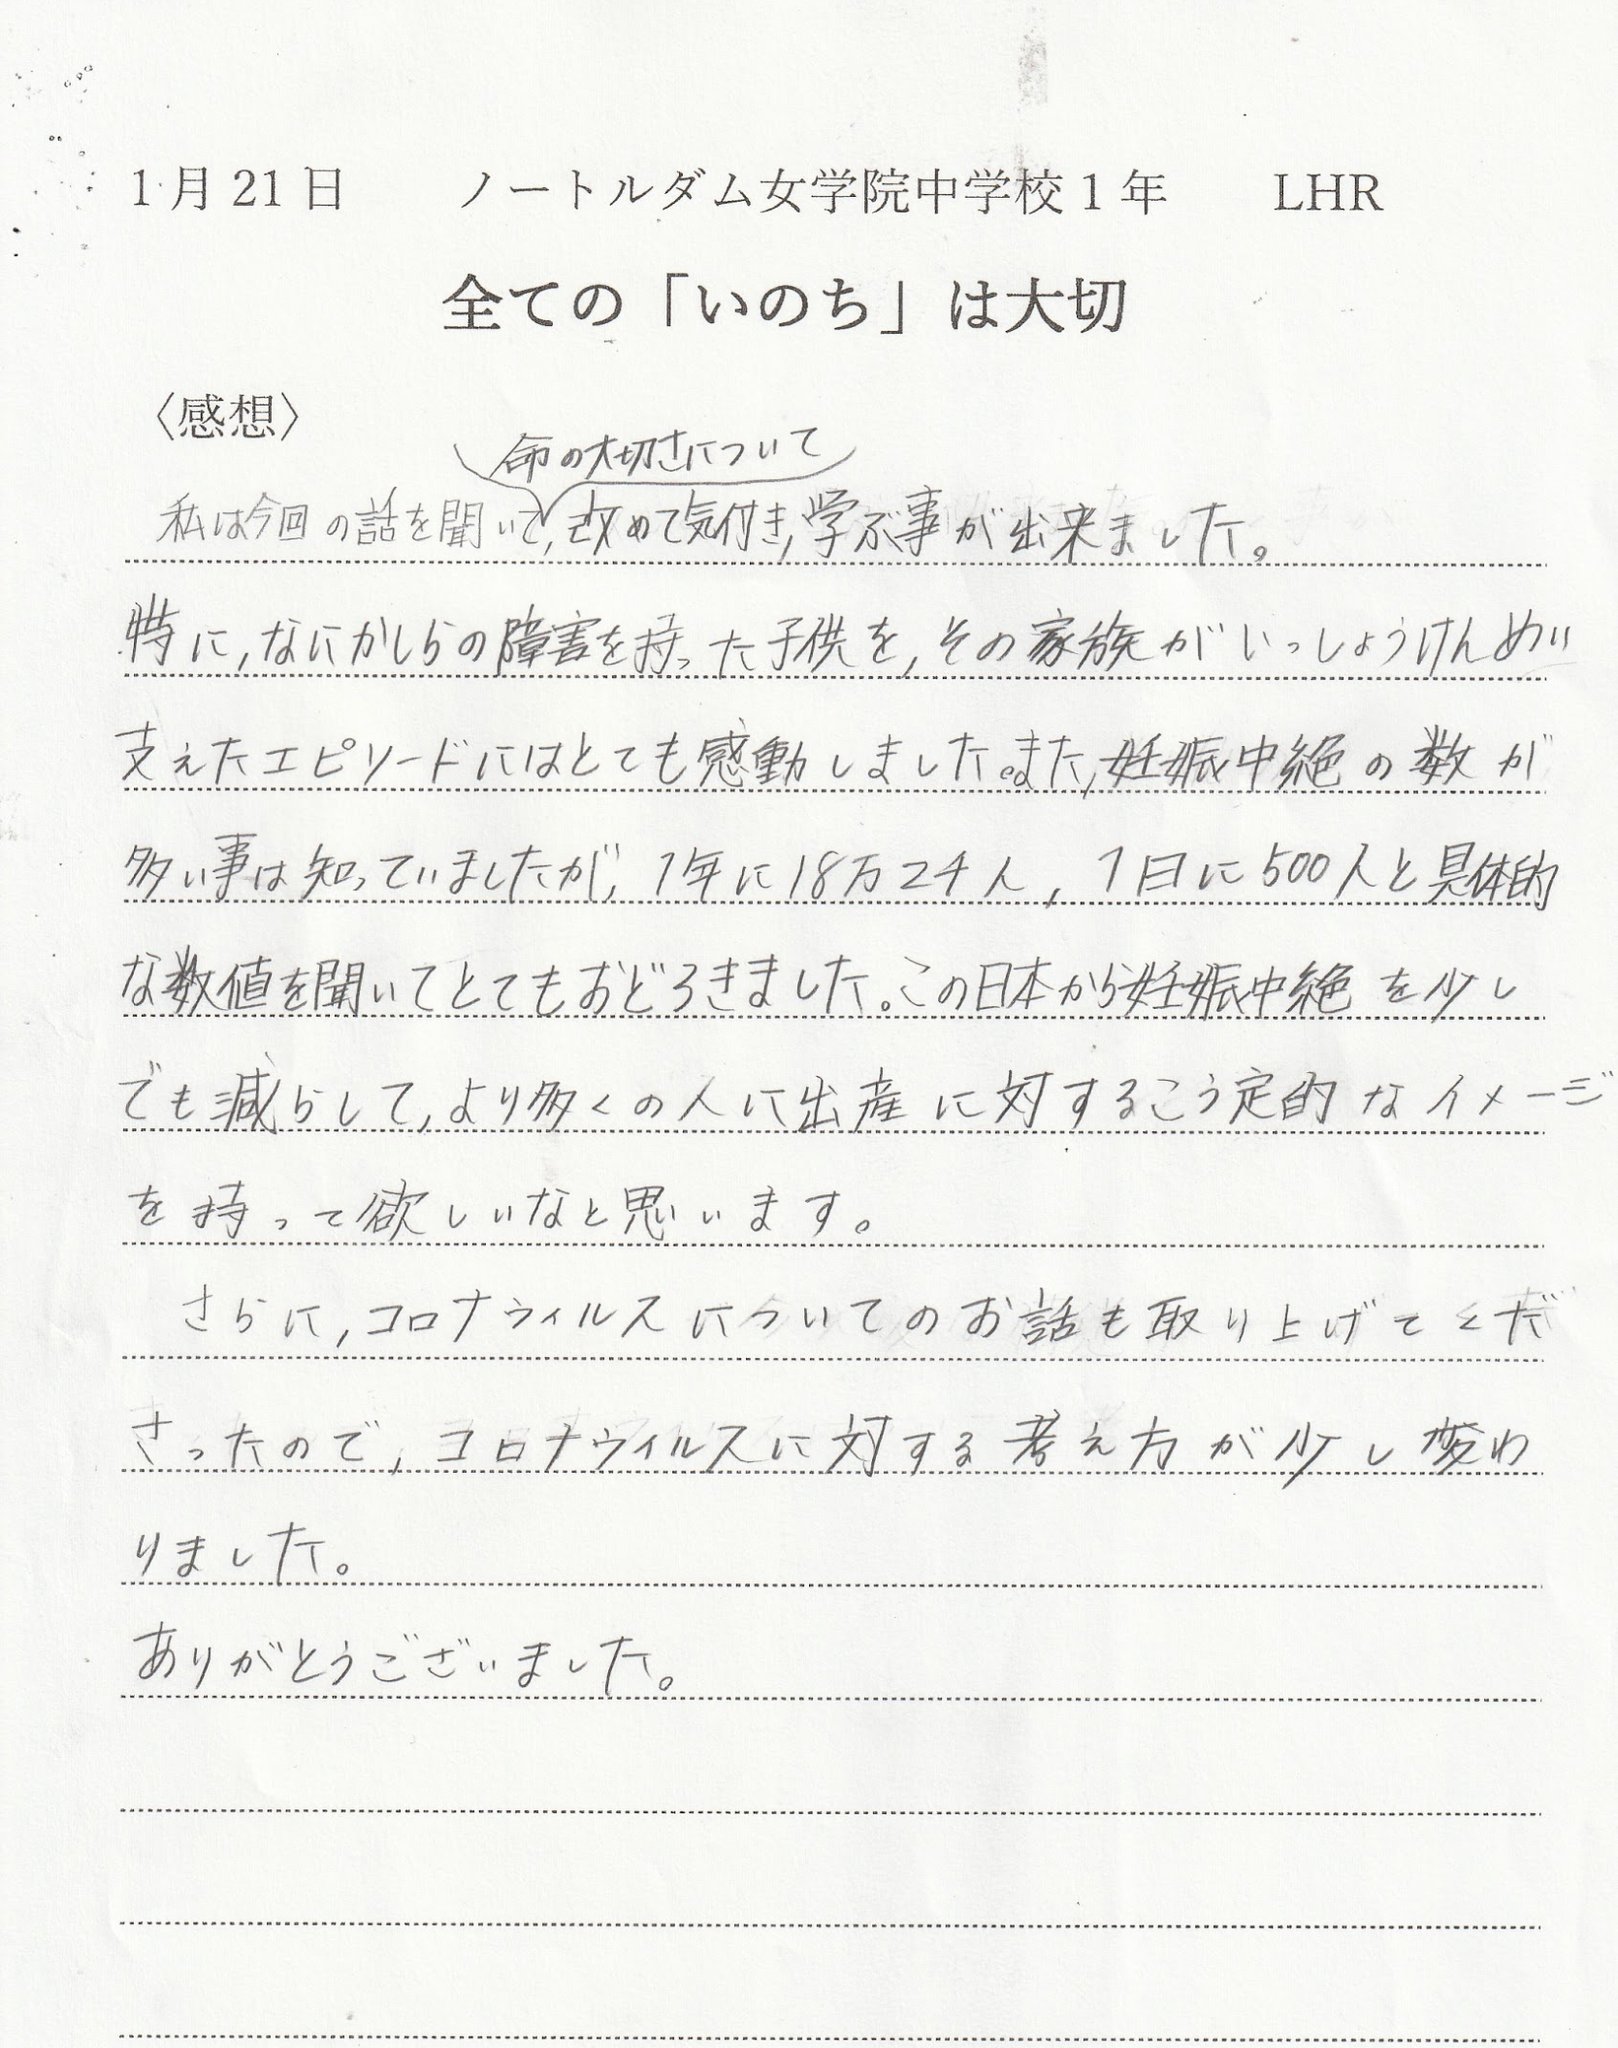 1月21日　ノートルダム女学院中学校1年　LHR
全ての「いのち」は大切
〈感想〉
命の大切さについて
私は今回の話を聞いて,改めて気付き,学ぶ事が出来ました。
特に,なにかしらの障害を持った子供を,その家族がいっしょうけんめい
支えたエピソードにはとても感動しました。また,妊娠中絶の数が
多い事は知っていましたが,1年に18万2千人,1日に500人と具体的
な数値を聞いてとてもおどろきました。この日本から妊娠中絶を少し
でも減らして,より多くの人に出産に対するこう定的なイメージ
を持って欲しいなと思います。
さらに,コロナウィルスについてのお話も取り上げてくだ
さったので,コロナウィルスに対する考え方が少し変わ
りました。
ありがとうございました。